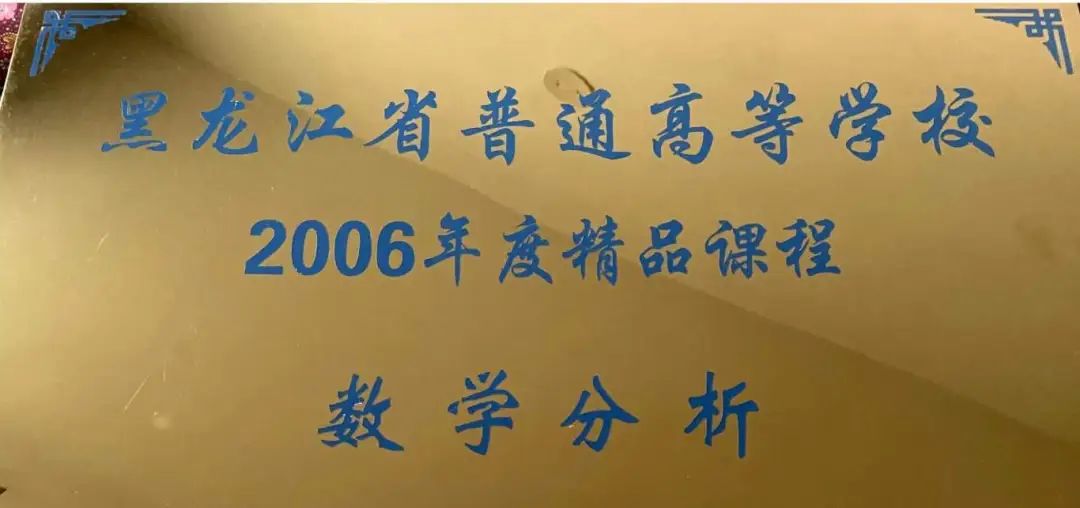 黑龙江省普通高等学校
2006年度精品课程
数学分析